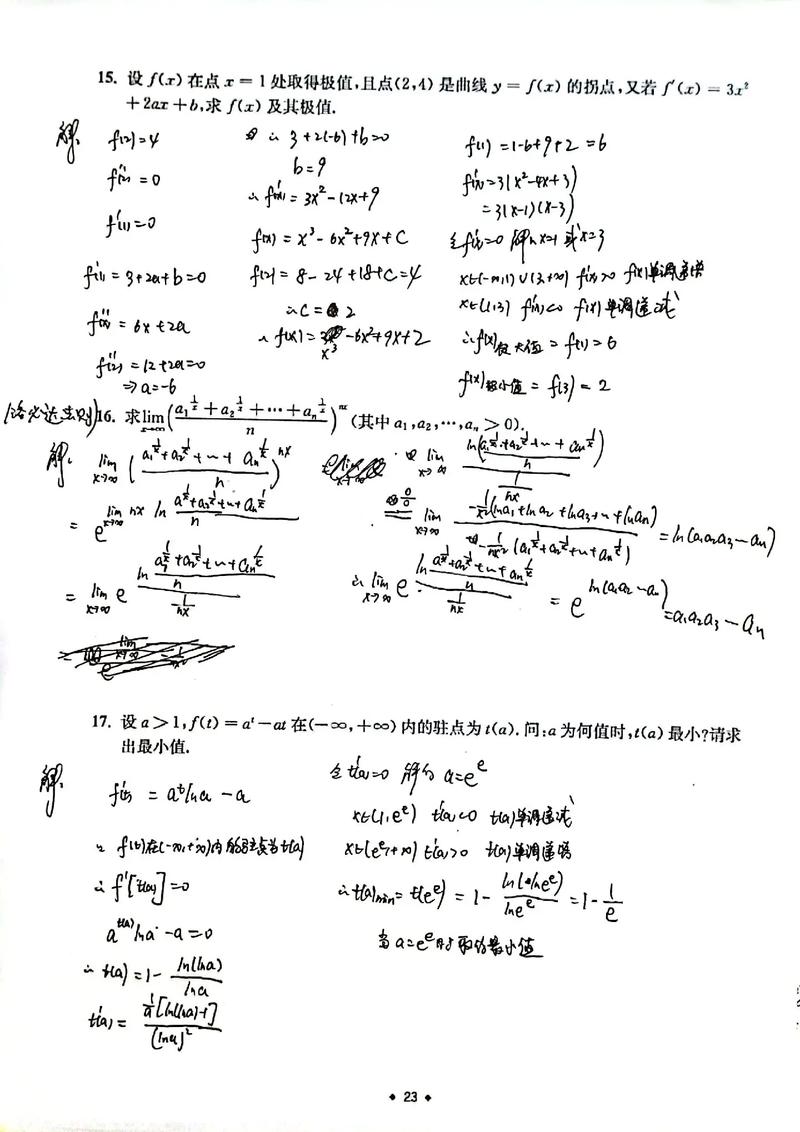 15. 设 f(x) 在点 x = 1 处取得极值,且点(2,4) 是曲线 y = f(x) 的拐点,又若 f′(x) = 3x²
+ 2ax + b,求 f(x) 及其极值.
解:
f(2)=4
f″(2)=0
f′(1)=0
f′(1)=3+2a+b=0
f″(x)=6x+2a
f″(2)=12+2a=0
⇒a=-6
∴ 3+2(-6)+b=0
b=9
∴ f′(x)=3x²-12x+9
f(x)=x³-6x²+9x+C
f(2)=8-24+18+C=4
∴C=2
∴ f(x)=x³-6x²+9x+2
f(1)=1-6+9+2=6
f′(x)=3(x²-4x+3)
=3(x-1)(x-3)
令f′(x)=0 解得x=1或x=3
x∈(-∞,1)∪(3,+∞) f′(x)>0 f(x)单调递增
x∈(1,3) f′(x)<0 f(x)单调递减
∴f(x)极大值=f(1)=6
f(x)极小值=f(3)=2
(洛必达法则)16. 求lim x→∞ ((a₁^(1/x)+a₂^(1/x)+⋯+aₙ^(1/x))/n)^(nx) (其中 a₁,a₂,⋯,aₙ > 0).
解:
lim x→∞ ((a₁^(1/x)+a₂^(1/x)+⋯+aₙ^(1/x))/n)^(nx)
= e^(lim x→∞ nx ln (a₁^(1/x)+a₂^(1/x)+⋯+aₙ^(1/x))/n)
= lim x→∞ e^(ln((a₁^(1/x)+a₂^(1/x)+⋯+aₙ^(1/x))/n)/(1/nx))
由 lim x→∞ ln((a₁^(1/x)+a₂^(1/x)+⋯+aₙ^(1/x))/n)/(1/nx)
0/0 = lim x→∞ -1/x²(lna₁+lna₂+lna₃+⋯+lnaₙ)/(-1/nx²(a₁^(1/x)+a₂^(1/x)+⋯+aₙ^(1/x))) = ln(a₁a₂a₃⋯aₙ)
∴ lim x→∞ e^(ln((a₁^(1/x)+a₂^(1/x)+⋯+aₙ^(1/x))/n)/(1/nx)) = e^(ln(a₁a₂⋯aₙ)) =a₁a₂a₃⋯aₙ
17. 设 a > 1, f(t) = aᵗ − at 在(−∞,+∞) 内的驻点为 t(a). 问:a 为何值时,t(a) 最小?请求
出最小值.
解:
f′(t) = aᵗlna - a
∵ f(t)在(-∞,+∞)内的驻点为t(a)
∴ f′[t(a)]=0
a^t(a) lna -a=0
∴ t(a)=1- ln(lna)/lna
t′(a)= (1/a)[ln(lna)-1]/(lna)²
令t′(a)=0 解得 a=eᵉ
x∈(1,eᵉ) t′(a)<0 t(a)单调递减
x∈(eᵉ,+∞) t′(a)>0 t(a)单调递增
∴t(a)min= t(eᵉ) = 1- ln(lneᵉ)/lneᵉ =1- 1/e
当 a=eᵉ时 取得最小值
◆ 23 ◆